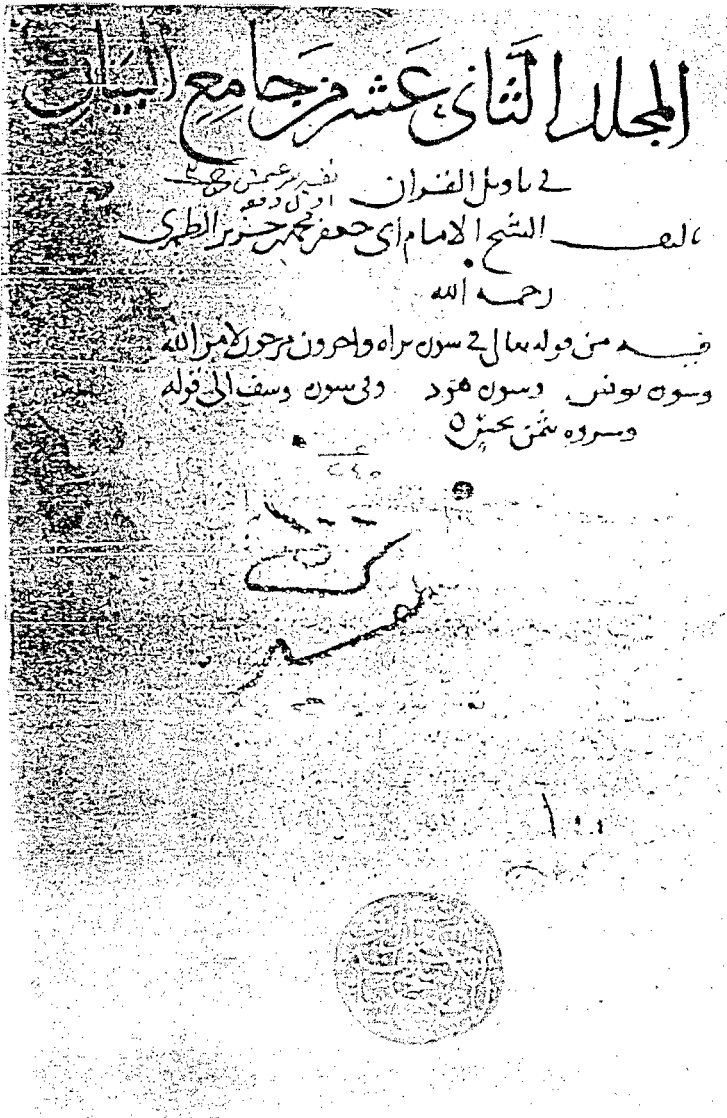 المجلد الثاني عشر من جامع البيان
في تاويل القران
تاليف الشيخ الامام ابي جعفر محمد بن جرير الطبري
رحمه الله
فيه من قوله تعالى في سورة براه واخرون مرجون لامر الله
وسورة يونس وسورة هود وفي سورة يوسف الى قوله
وشروه بثمن بخس